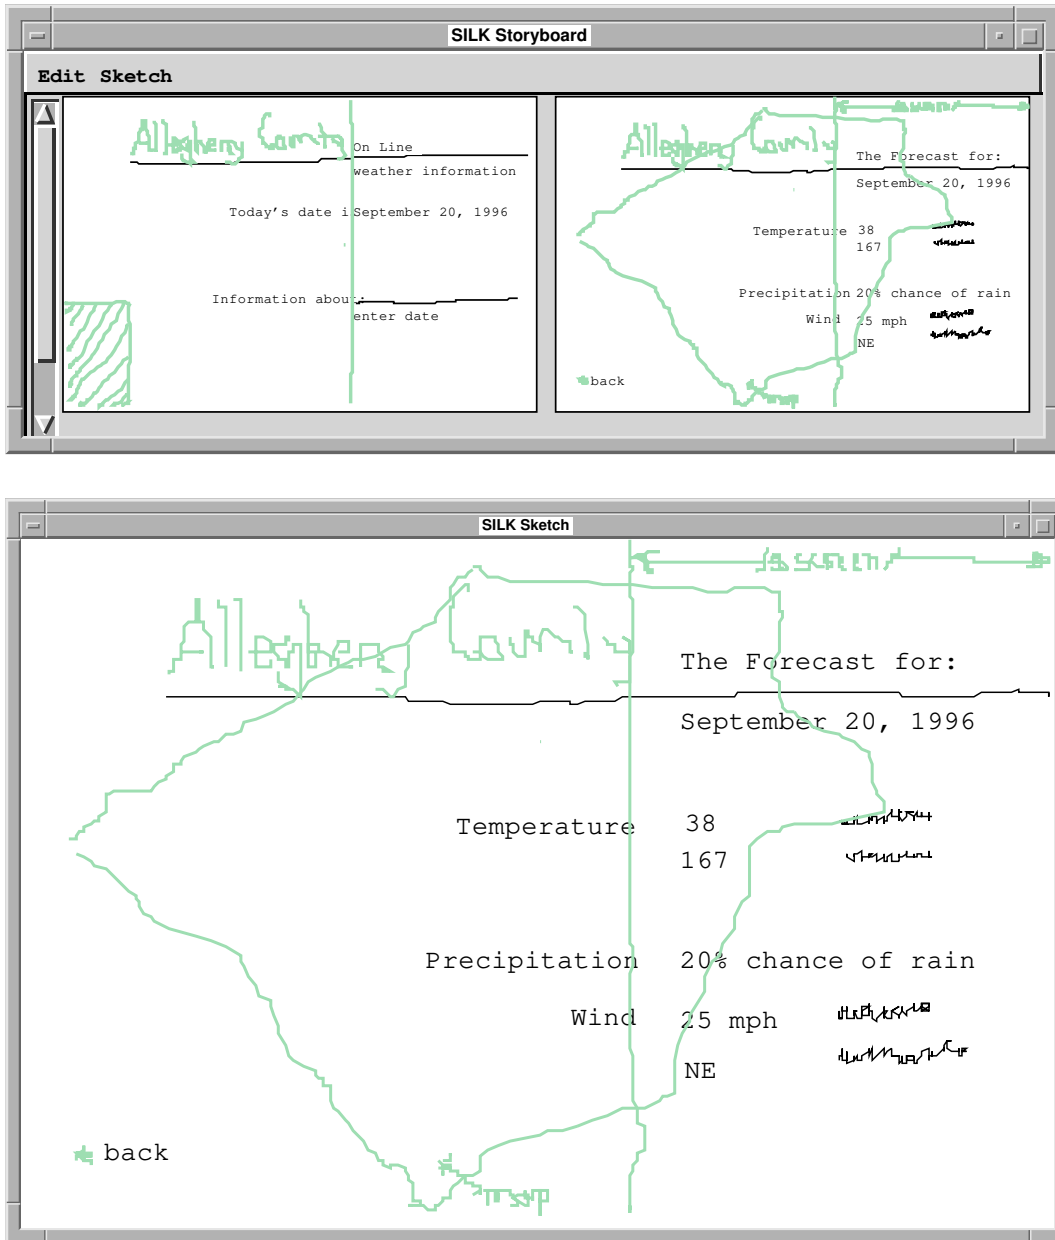 SILK Storyboard
Edit Sketch
Allegheny County
On Line
weather information
Today's date i September 20, 1996
Information about:
enter date
Allegheny County
The Forecast for:
September 20, 1996
Temperature 38
167
Precipitation 20% chance of rain
Wind 25 mph
NE
back
map
SILK Sketch
Allegheny County
The Forecast for:
September 20, 1996
Temperature 38
167
Precipitation 20% chance of rain
Wind 25 mph
NE
back
map